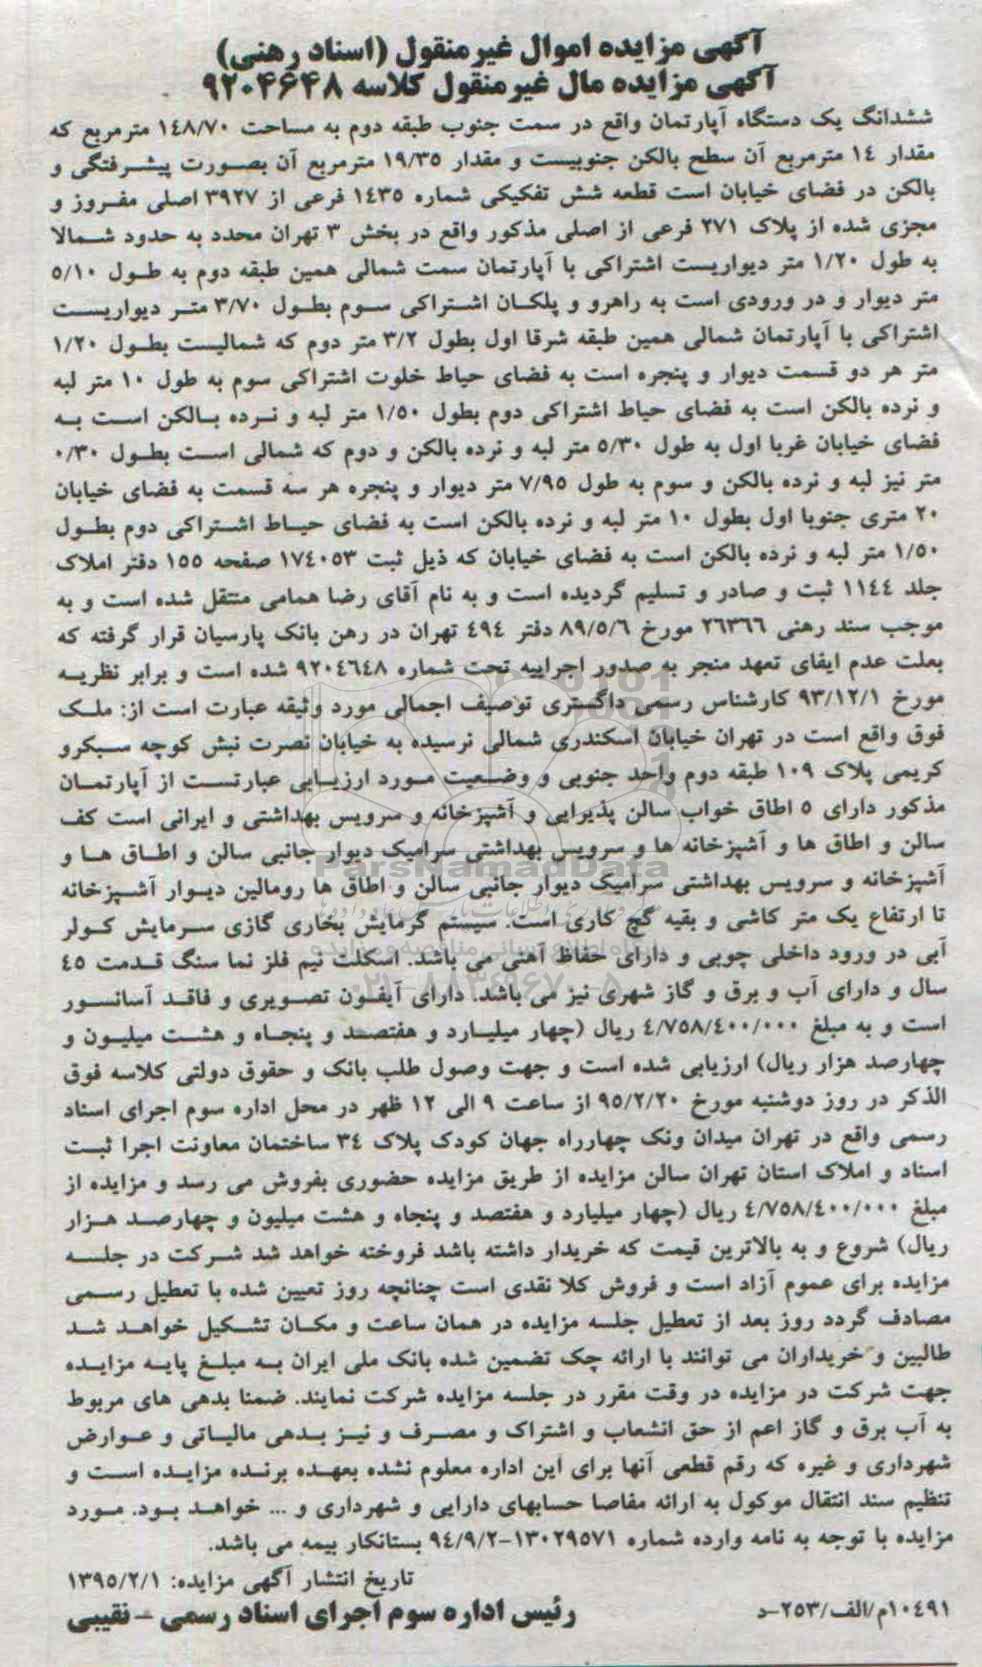 آگهی مزایده اموال غیرمنقول (اسناد رهنی)
آگهی مزایده مال غیرمنقول کلاسه ۹۲۰۴۶۴۸
ششدانگ یک دستگاه آپارتمان واقع در سمت جنوب طبقه دوم به مساحت ۱۴۸/۷۰ مترمربع که
مقدار ۱۴ مترمربع آن سطح بالکن جنوبیست و مقدار ۱۹/۳۵ مترمربع آن بصورت پیشرفتگی و
بالکن در فضای خیابان است قطعه شش تفکیکی شماره ۱۴۳۵ فرعی از ۳۹۲۷ اصلی مفروز و
مجزی شده از پلاک ۲۷۱ فرعی از اصلی مذکور واقع در بخش ۳ تهران محدد به حدود شمالا
به طول ۱/۲۰ متر دیواریست اشتراکی با آپارتمان سمت شمالی همین طبقه دوم به طول ۵/۱۰
متر دیوار و در ورودی است به راهرو و پلکان اشتراکی سوم بطول ۳/۷۰ متر دیواریست
اشتراکی با آپارتمان شمالی همین طبقه شرقا اول بطول ۳/۲ متر دوم که شمالیست بطول ۱/۲۰
متر هر دو قسمت دیوار و پنجره است به فضای حیاط خلوت اشتراکی سوم به طول ۱۰ متر لبه
و نرده بالکن است به فضای حیاط اشتراکی دوم بطول ۱/۵۰ متر لبه و نرده بالکن است به
فضای خیابان غربا اول به طول ۵/۳۰ متر لبه و نرده بالکن و دوم که شمالی است بطول ۰/۳۰
متر نیز لبه و نرده بالکن و سوم به طول ۷/۹۵ متر دیوار و پنجره هر سه قسمت به فضای خیابان
۲۰ متری جنوبا اول بطول ۱۰ متر لبه و نرده بالکن است به فضای حیاط اشتراکی دوم بطول
۱/۵۰ متر لبه و نرده بالکن است به فضای خیابان که ذیل ثبت ۱۷۴۰۵۳ صفحه ۱۵۵ دفتر املاک
جلد ۱۱۴۴ ثبت و صادر و تسلیم گردیده است و به نام آقای رضا همامی منتقل شده است و به
موجب سند رهنی ۲۶۳۶۶ مورخ ۸۹/۵/۶ دفتر ۴۹۴ تهران در رهن بانک پارسیان قرار گرفته که
بعلت عدم ایفای تعهد منجر به صدور اجراییه تحت شماره ۹۲۰۴۶۴۸ شده است و برابر نظریه
مورخ ۹۳/۱۲/۱ کارشناس رسمی دادگستری توصیف اجمالی مورد وثیقه عبارت است از: ملک
فوق واقع است در تهران خیابان اسکندری شمالی نرسیده به خیابان نصرت نبش کوچه سبکرو
کریمی پلاک ۱۰۹ طبقه دوم واحد جنوبی و وضعیت مورد ارزیابی عبارتست از آپارتمان
مذکور دارای ۵ اطاق خواب سالن پذیرایی و آشپزخانه و سرویس بهداشتی و ایرانی است کف
سالن و اطاق ها و آشپزخانه ها و سرویس بهداشتی سرامیک دیوار جانبی سالن و اطاق ها و
آشپزخانه و سرویس بهداشتی سرامیک دیوار جانبی سالن و اطاق ها رومالین دیوار آشپزخانه
تا ارتفاع یک متر کاشی و بقیه گچ کاری است. سیستم گرمایش بخاری گازی سرمایش کولر
آبی در ورود داخلی چوبی و دارای حفاظ آهنی می باشد. اسکلت نیم فلز نما سنگ قدمت ۴۵
سال و دارای آب و برق و گاز شهری نیز می باشد. دارای آیفون تصویری و فاقد آسانسور
است و به مبلغ ۴/۷۵۸/۴۰۰/۰۰۰ ریال (چهار میلیارد و هفتصد و پنجاه و هشت میلیون و
چهارصد هزار ریال) ارزیابی شده است و جهت وصول طلب بانک و حقوق دولتی کلاسه فوق
الذکر در روز دوشنبه مورخ ۹۵/۲/۲۰ از ساعت ۹ الی ۱۲ ظهر در محل اداره سوم اجرای اسناد
رسمی واقع در تهران میدان ونک چهارراه جهان کودک پلاک ۳۴ ساختمان معاونت اجرا ثبت
اسناد و املاک استان تهران سالن مزایده از طریق مزایده حضوری بفروش می رسد و مزایده از
مبلغ ۴/۷۵۸/۴۰۰/۰۰۰ ریال (چهار میلیارد و هفتصد و پنجاه و هشت میلیون و چهارصد هزار
ریال) شروع و به بالاترین قیمت که خریدار داشته باشد فروخته خواهد شد شرکت در جلسه
مزایده برای عموم آزاد است و فروش کلا نقدی است چنانچه روز تعیین شده با تعطیل رسمی
مصادف گردد روز بعد از تعطیل جلسه مزایده در همان ساعت و مکان تشکیل خواهد شد
طالبین و خریداران می توانند با ارائه چک تضمین شده بانک ملی ایران به مبلغ پایه مزایده
جهت شرکت در مزایده در وقت مقرر در جلسه مزایده شرکت نمایند. ضمنا بدهی های مربوط
به آب برق و گاز اعم از حق انشعاب و اشتراک و مصرف و نیز بدهی مالیاتی و عوارض
شهرداری و غیره که رقم قطعی آنها برای این اداره معلوم نشده بعهده برنده مزایده است و
تنظیم سند انتقال موکول به ارائه مفاصا حسابهای دارایی و شهرداری و ... خواهد بود. مورد
مزایده با توجه به نامه وارده شماره ۱۳۰۲۹۵۷۱-۹۴/۹/۲ بستانکار بیمه می باشد.
تاریخ انتشار آگهی مزایده: ۱۳۹۵/۲/۱
۱۰۴۹۱م/الف/۲۵۳-د
رئیس اداره سوم اجرای اسناد رسمی - نقیبی
ParsNamadData
۰۲۱-۸۸۳۴۹۶۷۰-۵